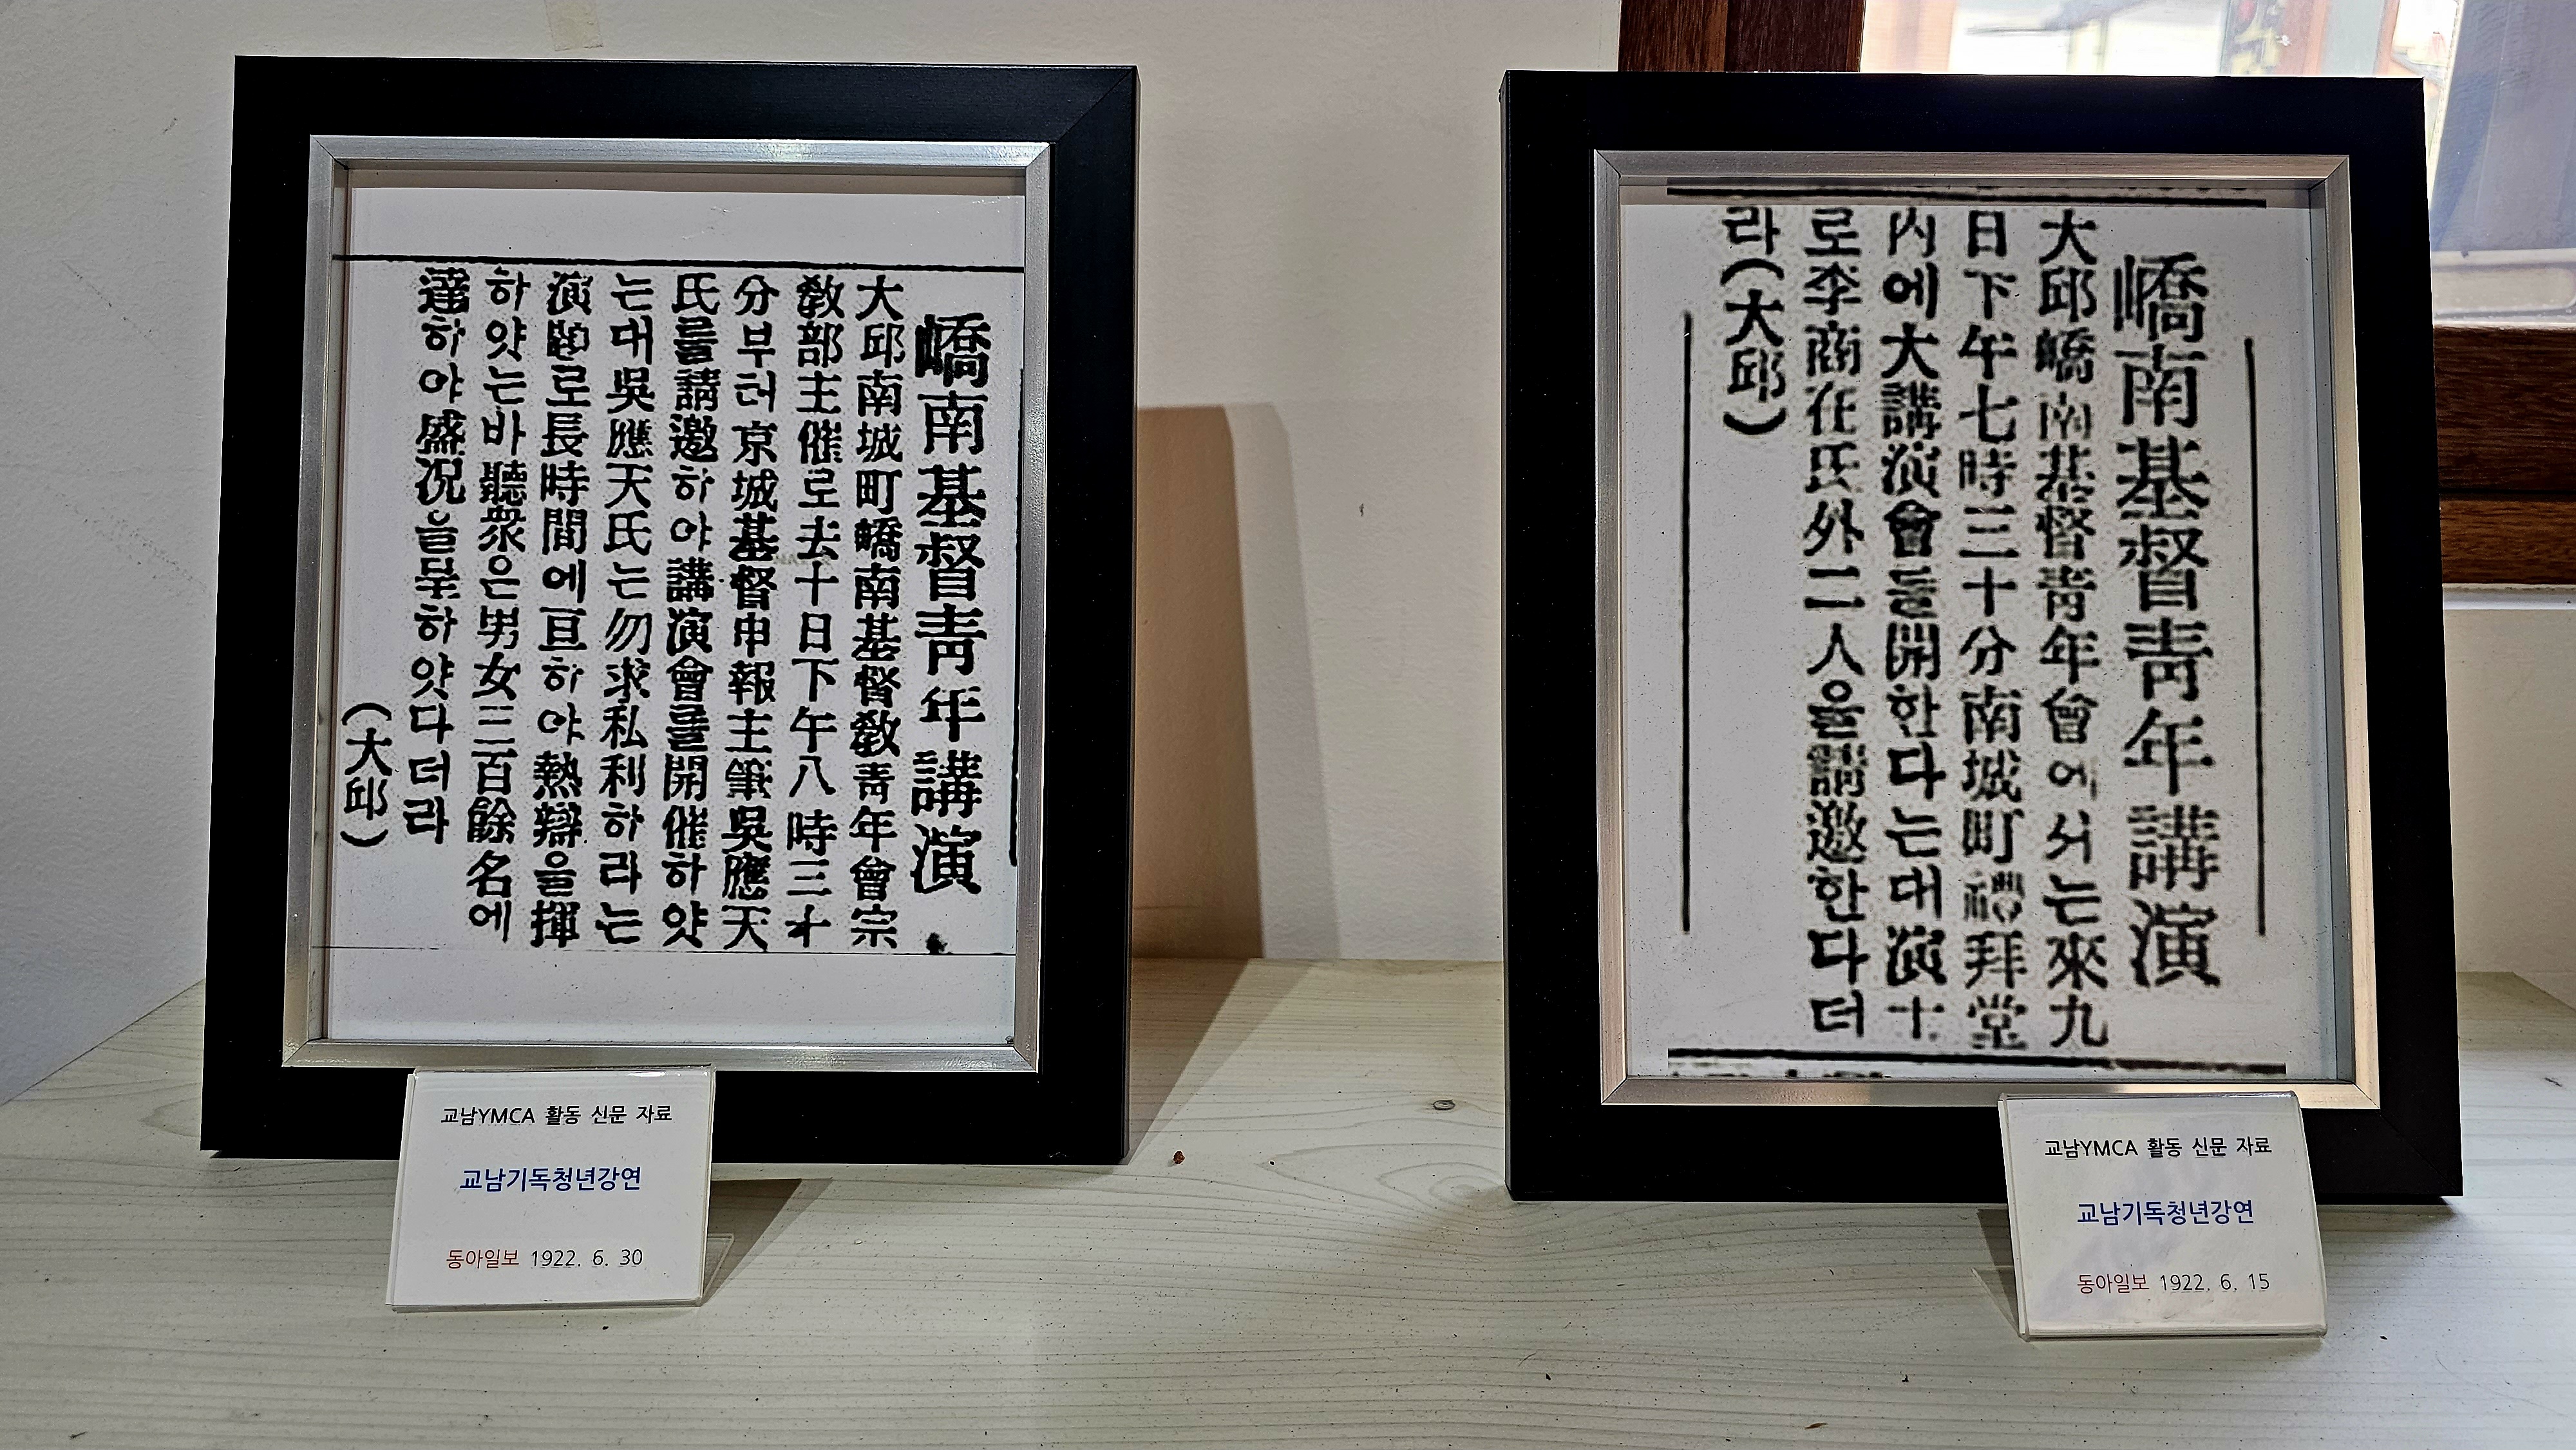 嶠南基督靑年講演
大邱南城町嶠南基督敎靑年會宗
敎部主催로去十日下午八時三十
分부터京城基督申報主筆吳應天
氏를請邀하야講演會를開催하얏
는대吳應天氏는勿求私利하라는
演題로長時間에亘하야熱辯을揮
하얏는바聽衆은男女三百餘名에
達하야盛况을呈하얏다더라
(大邱)
교남YMCA 활동 신문 자료
교남기독청년강연
동아일보 1922. 6. 30
嶠南基督靑年講演
大邱嶠南基督靑年會에서는來九
日下午七時三十分南城町禮拜堂
內에大講演會를開한다는대演士
로李商在氏外二人을請邀한다더
라(大邱)
교남YMCA 활동 신문 자료
교남기독청년강연
동아일보 1922. 6. 15